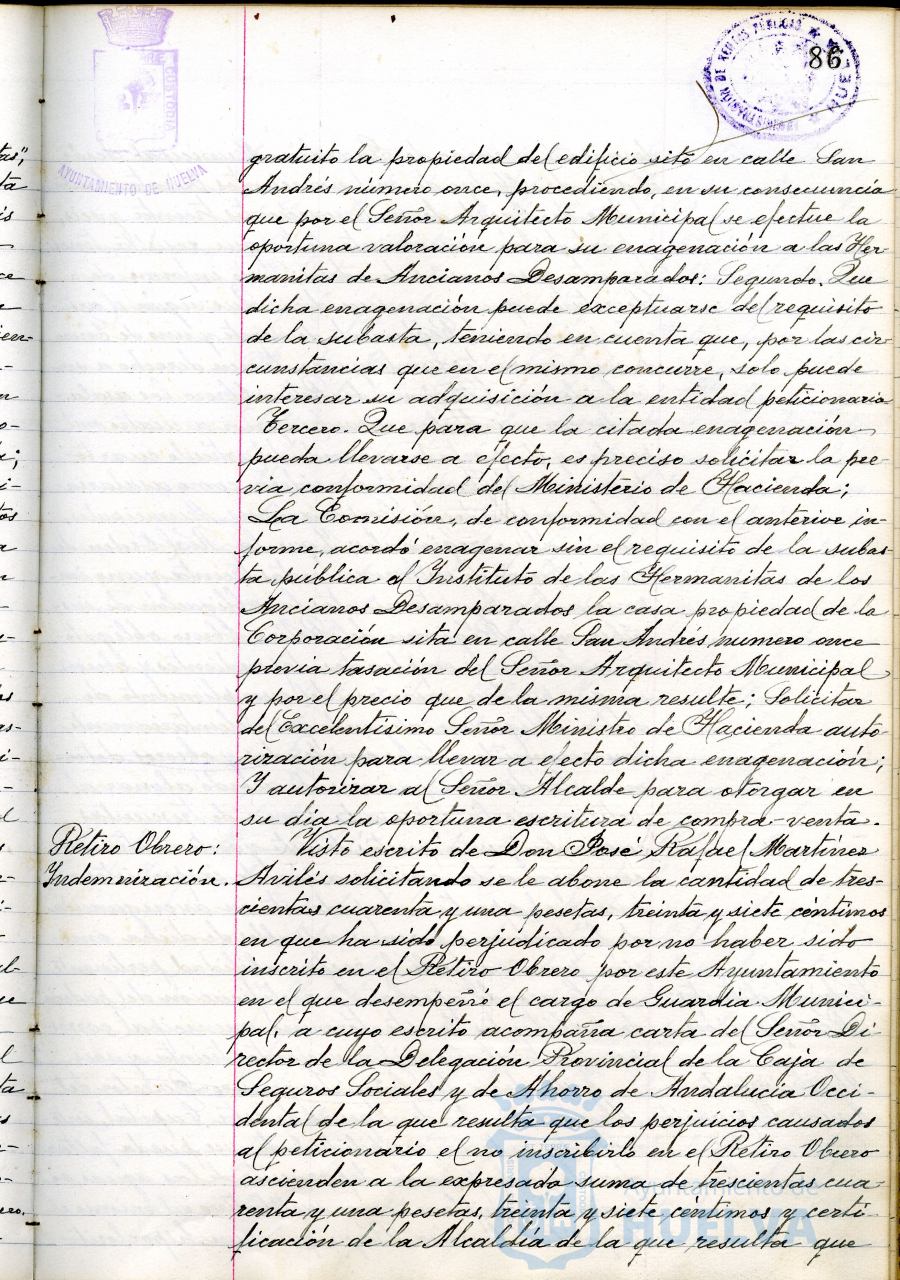 86
AYUNTAMIENTO DE HUELVA
CUSTODIA
gratuito la propiedad del edificio sito en calle San
Andrés número once, procediendo, en su consecuencia
que por el Señor Arquitecto Municipal se efectue la
oportuna valoración para su enagenación a las Her-
manitas de Ancianos Desamparados: Segundo. Que
dicha enagenación puede exceptuarse del requisito
de la subasta, teniendo en cuenta que, por las cir-
cunstancias que en el mismo concurre, solo puede
interesar su adquisición a la entidad peticionaria
Tercero. Que para que la citada enagenación
pueda llevarse a efecto, es preciso solicitar la pre-
via conformidad del Ministerio de Hacienda;
La Comisión, de conformidad con el anterior in-
forme, acordó enagenar sin el requisito de la subas-
ta pública al Instituto de las Hermanitas de los
Ancianos Desamparados la casa propiedad de la
Corporación sita en calle San Andrés numero once
previa tasación del Señor Arquitecto Municipal
y por el precio que de la misma resulte; Solicitar
del Excelentísimo Señor Ministro de Hacienda auto-
rización para llevar a efecto dicha enagenación;
Y autorizar al Señor Alcalde para otorgar en
su día la oportuna escritura de compra-venta.
Retiro Obrero:
Indemnización.
Visto escrito de Don José Rafael Martínez
Avilés solicitando se le abone la cantidad de tres-
cientas cuarenta y una pesetas, treinta y siete céntimos
en que ha sido perjudicado por no haber sido
inscrito en el Retiro Obrero por este Ayuntamiento
en el que desempeñó el cargo de Guardia Munici-
pal, a cuyo escrito acompaña carta del Señor Di
rector de la Delegación Provincial de la Caja de
Seguros Sociales y de Ahorro de Andalucia Occi-
dental de la que resulta que los perjuicios causados
al peticionario el no inscribirlo en el Retiro Obrero
ascienden a la expresada suma de trescientas cua-
renta y una pesetas, treinta y siete céntimos y certi-
ficación de la Alcaldía de la que resulta que
Ayuntamiento de
HUELVA